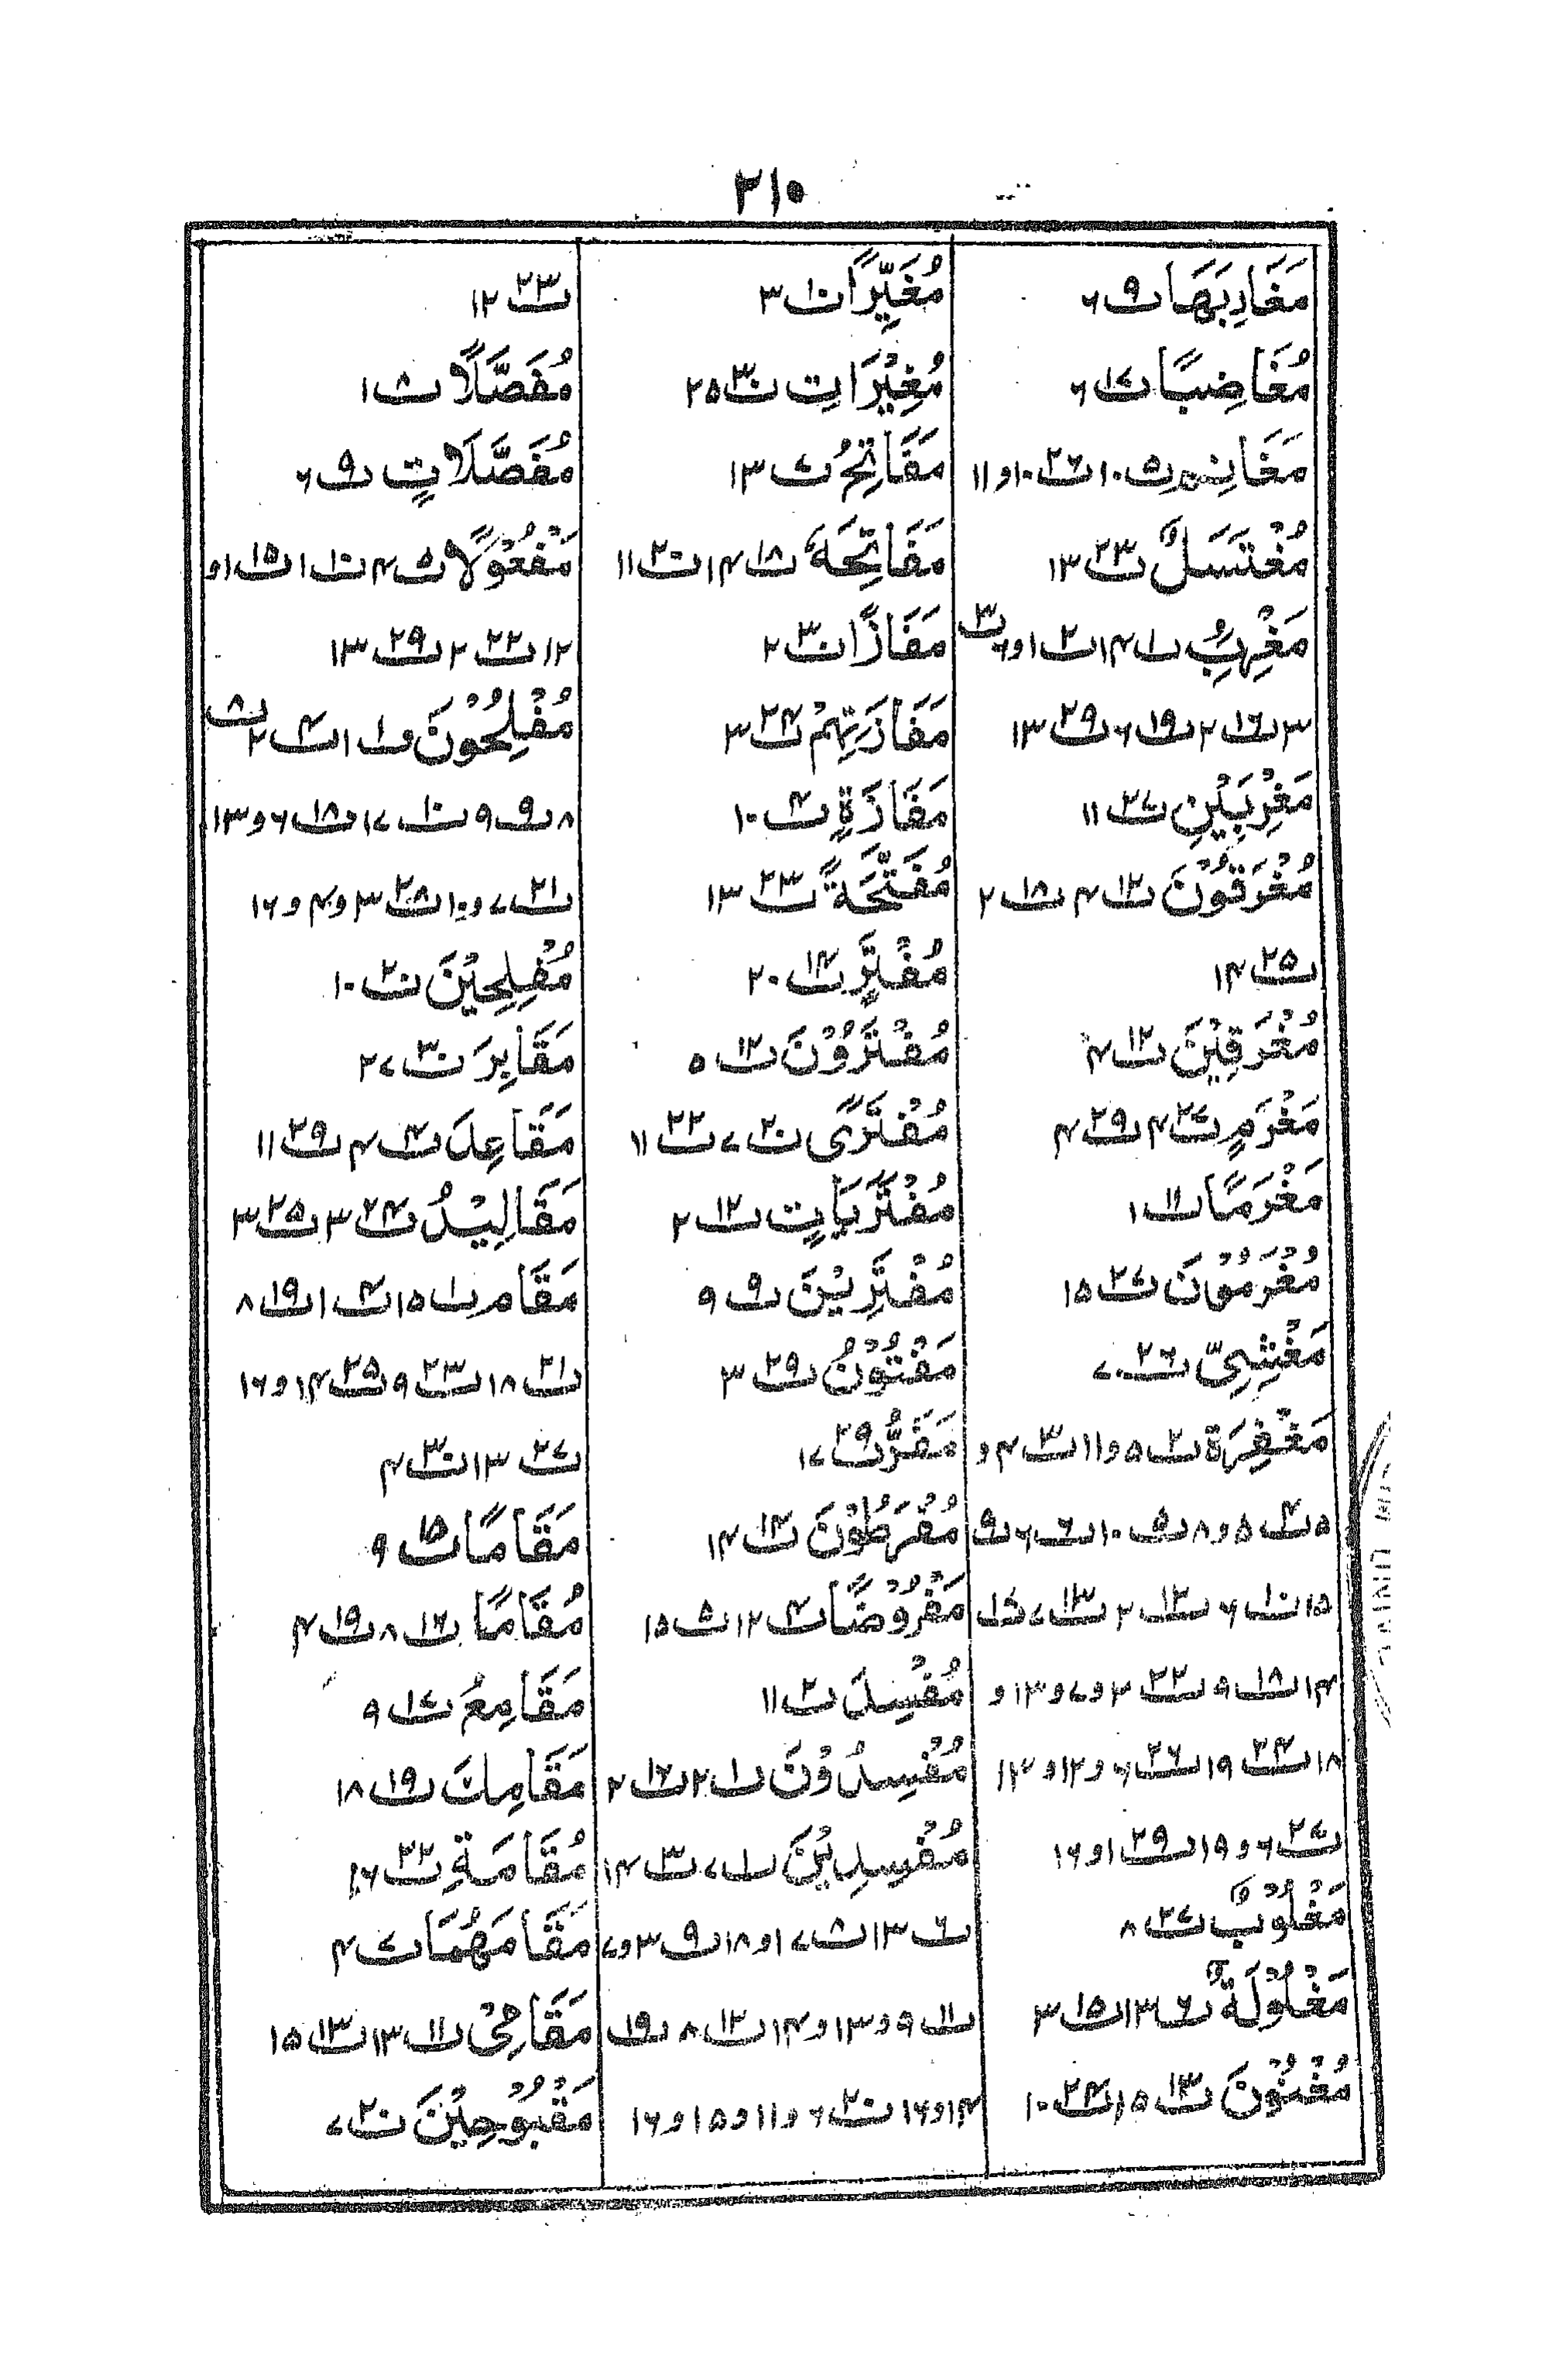 ۲۱۰
مَغَارِبَهَا پ۹ ۶
مُغَاضِبًا پ۱۷ ۶
مَغَانِمُ پ۵ ۱۰ پ۲۶ ۱۰و۱۱
مُغْتَسَلٌ پ۲۳ ۱۳
مَغْرِبُ پ۱ ۱۴ پ۲ ۱و۶ پ۳
۳ پ۱۶ ۲ پ۱۹ ۶ پ۲۹ ۱۳
مَغْرِبَيْنِ پ۲۷ ۱۱
مُغْرَقُوْنَ پ۱۲ ۴ پ۱۸ ۲
پ۲۵ ۱۴
مُغْرَقِيْنَ پ۱۲ ۴
مَغْرَمٍ پ۲۷ ۴ پ۲۹ ۴
مَغْرَمًا پ۱۱ ۱
مُغْرَمُوْنَ پ۲۷ ۱۵
مَغْشِيِّ پ۲۶ ۷
مَغْفِرَة پ۲ ۵و۱۱ پ۳ ۴و
۵ پ۴ ۵و۸ پ۵ ۱۰ پ۶ ۶ پ۹
۱۵ پ۱۰ ۶ پ۱۲ ۲ پ۱۳ ۷ پ۱۷
۱۴ پ۱۸ ۹ پ۲۲ ۲و۷و۱۳و
۱۸ پ۲۴ ۱۹ پ۲۶ ۶و۱۲و۱۳
پ۲۷ ۶و۱۹ پ۲۹ ۱و۱۶
مَغْلُوْبٌ پ۲۷ ۸
مَغْلُوْلَةٌ پ۶ ۱۳ پ۱۵ ۳
مُغْنُوْنَ پ۱۳ ۱۵ پ۲۴ ۱۰
مُغَيِّرًا پ۱۰ ۳
مُغِيْرَاتِ پ۳۰ ۲۵
مَفَاتِحُ پ۷ ۱۳
مَفَاتِحَهٗ پ۱۸ ۱۴ پ۲۰ ۱۱
مَفَازًا پ۳۰ ۲
مَفَازَتِهِمْ پ۲۴ ۳
مَفَازَةٍ پ۴ ۱۰
مُفَتَّحَةً پ۲۳ ۱۳
مُفْتَرٍ پ۱۴ ۲۰
مُفْتَرُوْنَ پ۱۲ ۵
مُفْتَرًى پ۲۰ ۷ پ۲۲ ۱۱
مُفْتَرَيَاتٍ پ۱۲ ۲
مُفْتَرِيْنَ پ۹ ۹
مَفْتُوْنُ پ۲۹ ۳
مَفَرُّ پ۲۹ ۱۷
مُفْرَطُوْنَ پ۱۴ ۱۴
مَفْرُوْضًا پ۴ ۱۲ پ۵ ۱۵
مُفْسِدَ پ۲ ۱۱
مُفْسِدُوْنَ پ۱ ۲ پ۱۶ ۲
مُفْسِدِيْنَ پ۱ ۷ پ۳ ۱۴
پ۶ ۱۳ پ۸ ۱۷و۱۸ پ۹ ۳و۷
پ۱۱ ۹و۱۳و۱۴ پ۱۲ ۸ پ۱۹
۱۴و۱۶ پ۲۰ ۶و۱۱و۱۵و۱۶
پ۲۳ ۱۲
مُفَصَّلًا پ۸ ۱
مُفَصَّلَاتٍ پ۹ ۶
مَفْعُوْلًا پ۵ ۴ پ۱۰ ۱ پ۱۵ ۱و
۱۲ پ۲۲ ۲ پ۲۹ ۱۳
مُفْلِحُوْنَ پ۱ ۱ پ۴ ۲ پ۸
۸ پ۹ ۹ پ۱۰ ۱۷ پ۱۸ ۶و۱۳
پ۲۱ ۷و۱۰ پ۲۸ ۳و۴و۱۶
مُفْلِحِيْنَ پ۲۰ ۱۰
مَقَابِرَ پ۳۰ ۲۷
مَقَاعِدَ پ۴ ۴ پ۲۹ ۱۱
مَقَالِيْدُ پ۲۴ ۳ پ۲۵ ۳
مَقَام پ۱ ۱۵ پ۴ ۱ پ۱۹ ۸
پ۲۱ ۱۸ پ۲۳ ۹ پ۲۵ ۱۴و۱۶
پ۲۷ ۱۳ پ۳۰ ۴
مَقَامًا پ۱۵ ۹
مُقَامًا پ۱۶ ۸ پ۱۹ ۴
مَقَامِعُ پ۱۷ ۹
مَقَامِكَ پ۱۹ ۱۸
مُقَامَةِ پ۲۲ ۱۶
مَقَامَهُمَا پ۷ ۴
مَقَامِيْ پ۱۱ ۱۳ پ۱۳ ۱۵
مَقْبُوْحِيْنَ پ۲۰ ۷